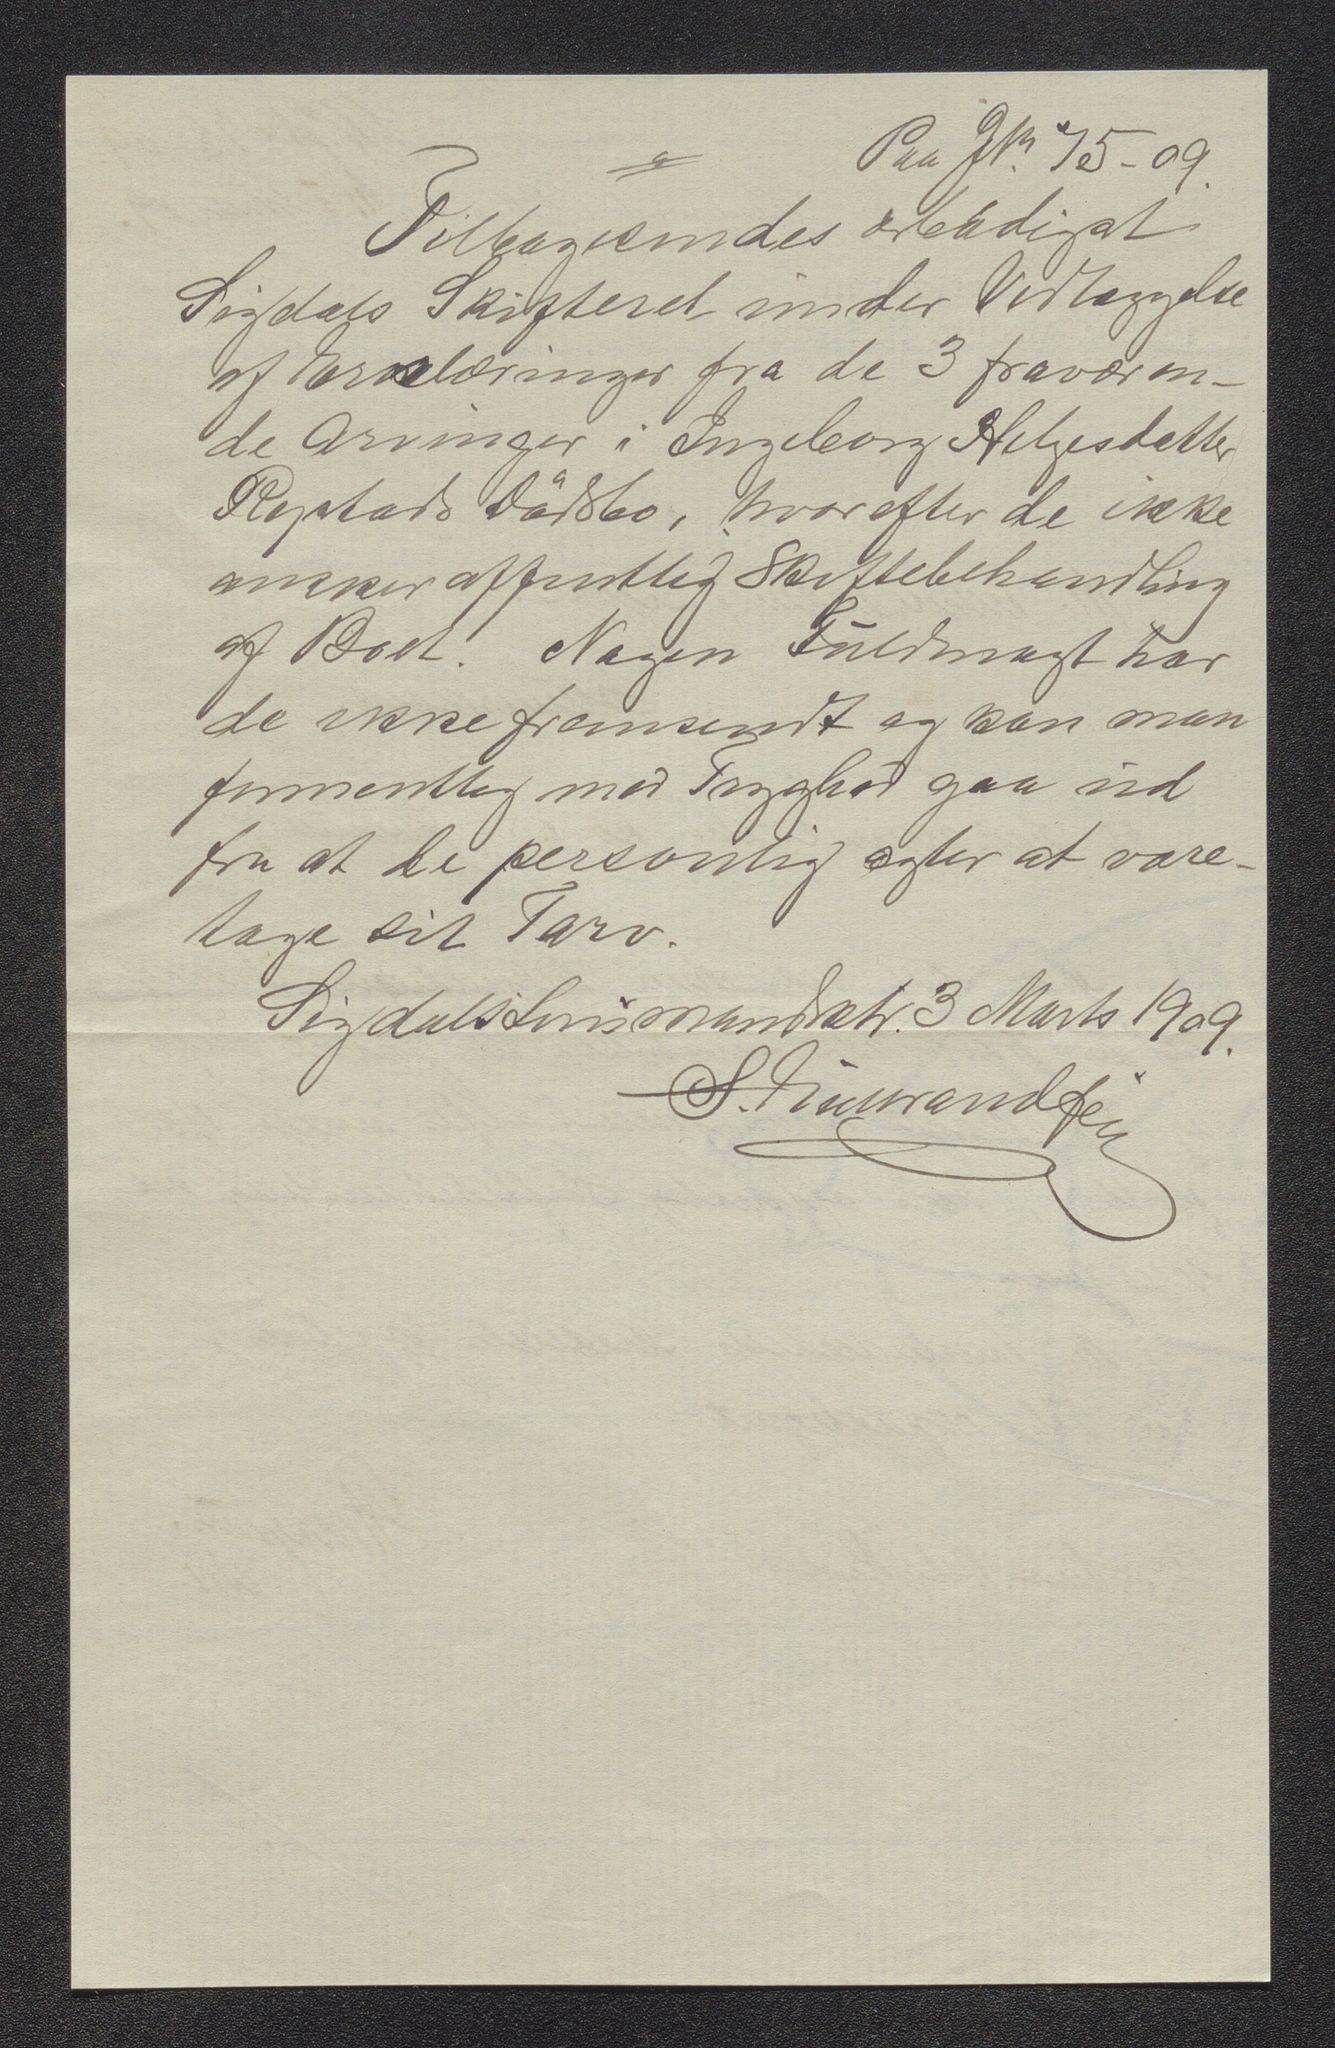 Paa J№ 75-09.
Tilbagesendes ærbødigst
Sigdals Skifteret under Vedlæggelse
af Erklæringer fra de 3 fraværen-
de Arvinger i Ingeborg Helgesdatter
Dødsbo, hvorefter de ikke
ønsker offentlig Skiftebehandling
af Boet. Nogen Fuldmagt har
de ikke fremsendt og kan man
formentlig med Tryghed gaa ud
fra at de personlig agter at vare-
tage sit Tarv.
Sigdals Lensmandsktr. 3 Marts 1909.
S.